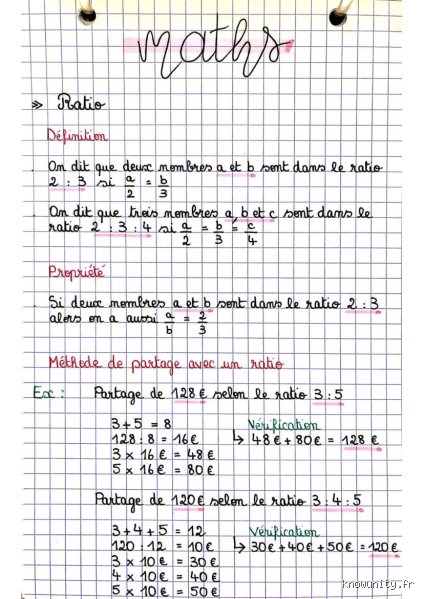 maths
» Ratio
Définition
. On dit que deux nombres a et b sont dans le ratio
2 : 3 si a/2 = b/3
. On dit que trois nombres a, b et c sont dans le
ratio 2 : 3 : 4 si a/2 = b/3 = c/4
Propriété
. Si deux nombres a et b sont dans le ratio 2 : 3
alors on a aussi a/b = 2/3
Méthode de partage avec un ratio
Ex : Partage de 128 € selon le ratio 3 : 5
3 + 5 = 8 Vérification
128 : 8 = 16 € ↳ 48 € + 80 € = 128 €
3 × 16 € = 48 €
5 × 16 € = 80 €
Partage de 120 € selon le ratio 3 : 4 : 5
3 + 4 + 5 = 12 Vérification
120 : 12 = 10 € ↳ 30 € + 40 € + 50 € = 120 €
3 × 10 € = 30 €
4 × 10 € = 40 €
5 × 10 € = 50 €
knowunity.fr